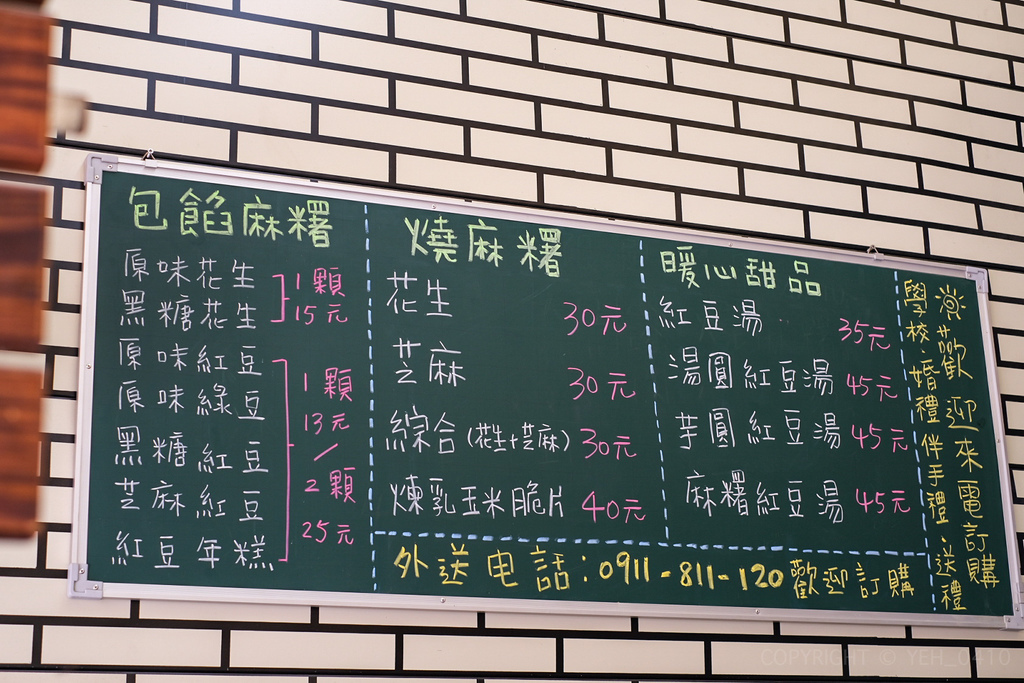 包餡麻糬
原味花生
黑糖花生
1顆
15元
原味紅豆
原味綠豆
黑糖紅豆
芝麻紅豆
紅豆年糕
1顆
13元
/
2顆
25元
燒麻糬
花生 30元
芝麻 30元
綜合(花生+芝麻) 30元
煉乳玉米脆片 40元
暖心甜品
紅豆湯 35元
湯圓紅豆湯 45元
芋圓紅豆湯 45元
麻糬紅豆湯 45元
外送电話:0911-811-120歡迎訂購
歡迎來電訂購
學校·婚禮伴手禮·送禮
COPYRIGHT © YEH_0410